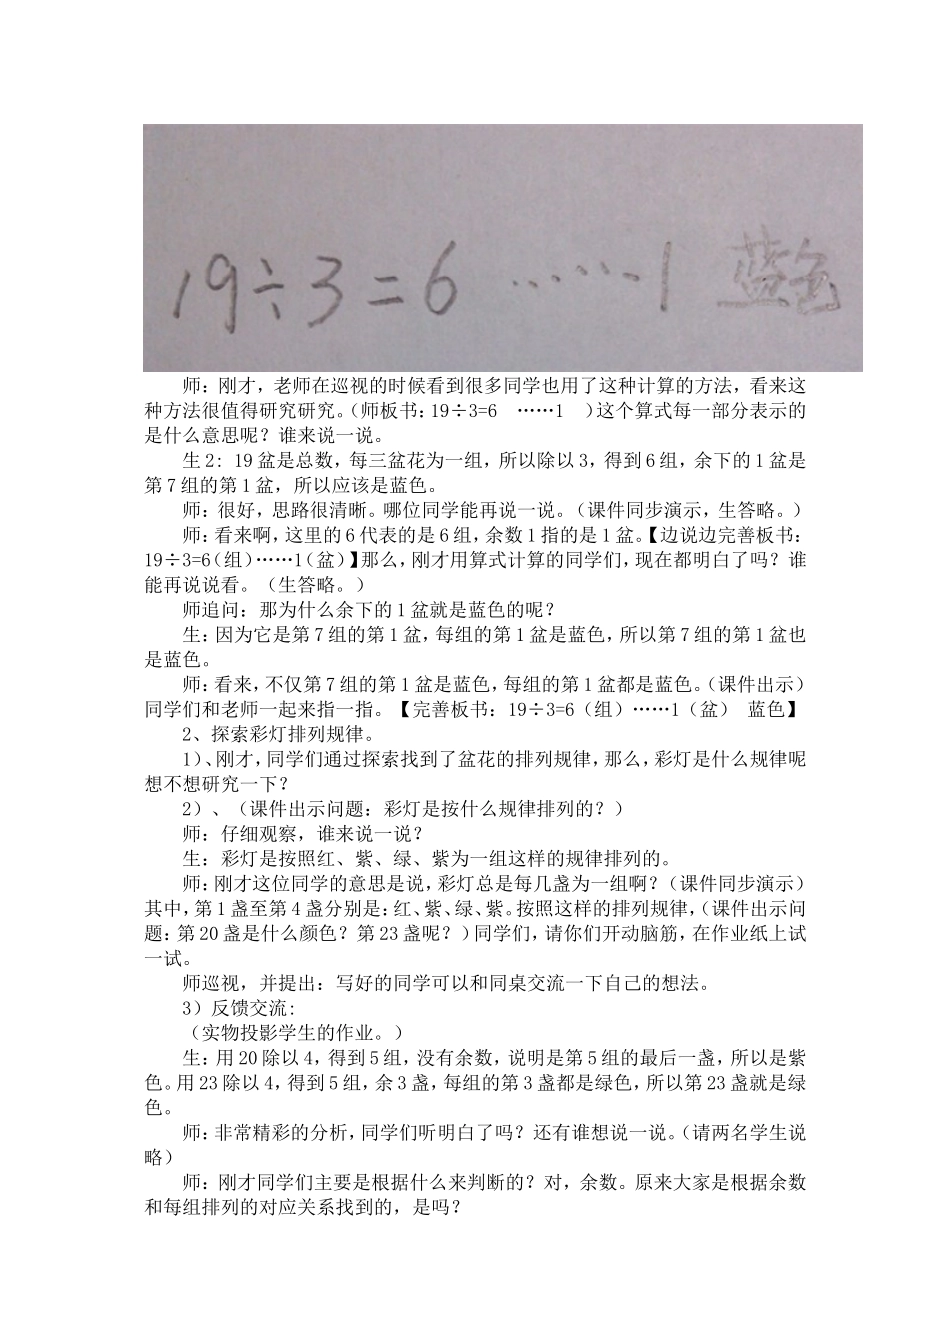 19÷3=6 ……1 蓝色
师：刚才，老师在巡视的时候看到很多同学也用了这种计算的方法，看来这
种方法很值得研究研究。（师板书：19÷3=6 ……1 ）这个算式每一部分表示的
是什么意思呢？谁来说一说。
生 2：19 盆是总数，每三盆花为一组，所以除以 3，得到 6 组，余下的 1 盆是
第 7 组的第 1 盆，所以应该是蓝色。
师：很好，思路很清晰。哪位同学能再说一说。（课件同步演示，生答略。）
师：看来啊，这里的 6 代表的是 6 组，余数 1 指的是 1 盆。【边说边完善板书：
19÷3=6（组）……1（盆）】那么，刚才用算式计算的同学们，现在都明白了吗？谁
能再说说看。（生答略。）
师追问：那为什么余下的 1 盆就是蓝色的呢？
生：因为它是第 7 组的第 1 盆，每组的第 1 盆是蓝色，所以第 7 组的第 1 盆也
是蓝色。
师：看来，不仅第 7 组的第 1 盆是蓝色，每组的第 1 盆都是蓝色。（课件出示）
同学们和老师一起来指一指。【完善板书：19÷3=6（组）……1（盆） 蓝色】
2、探索彩灯排列规律。
1）、刚才，同学们通过探索找到了盆花的排列规律，那么，彩灯是什么规律呢
想不想研究一下？
2）、（课件出示问题：彩灯是按什么规律排列的？）
师：仔细观察，谁来说一说？
生：彩灯是按照红、紫、绿、紫为一组这样的规律排列的。
师：刚才这位同学的意思是说，彩灯总是每几盏为一组啊？（课件同步演示）
其中，第 1 盏至第 4 盏分别是：红、紫、绿、紫。按照这样的排列规律，（课件出示问
题：第 20 盏是什么颜色？第 23 盏呢？）同学们，请你们开动脑筋，在作业纸上试
一试。
师巡视，并提出：写好的同学可以和同桌交流一下自己的想法。
3）反馈交流：
（实物投影学生的作业。）
生：用 20 除以 4，得到 5 组，没有余数，说明是第 5 组的最后一盏，所以是紫
色。用 23 除以 4，得到 5 组，余 3 盏，每组的第 3 盏都是绿色，所以第 23 盏就是绿
色。
师：非常精彩的分析，同学们听明白了吗？还有谁想说一说。（请两名学生说
略）
师：刚才同学们主要是根据什么来判断的？对，余数。原来大家是根据余数
和每组排列的对应关系找到的，是吗？